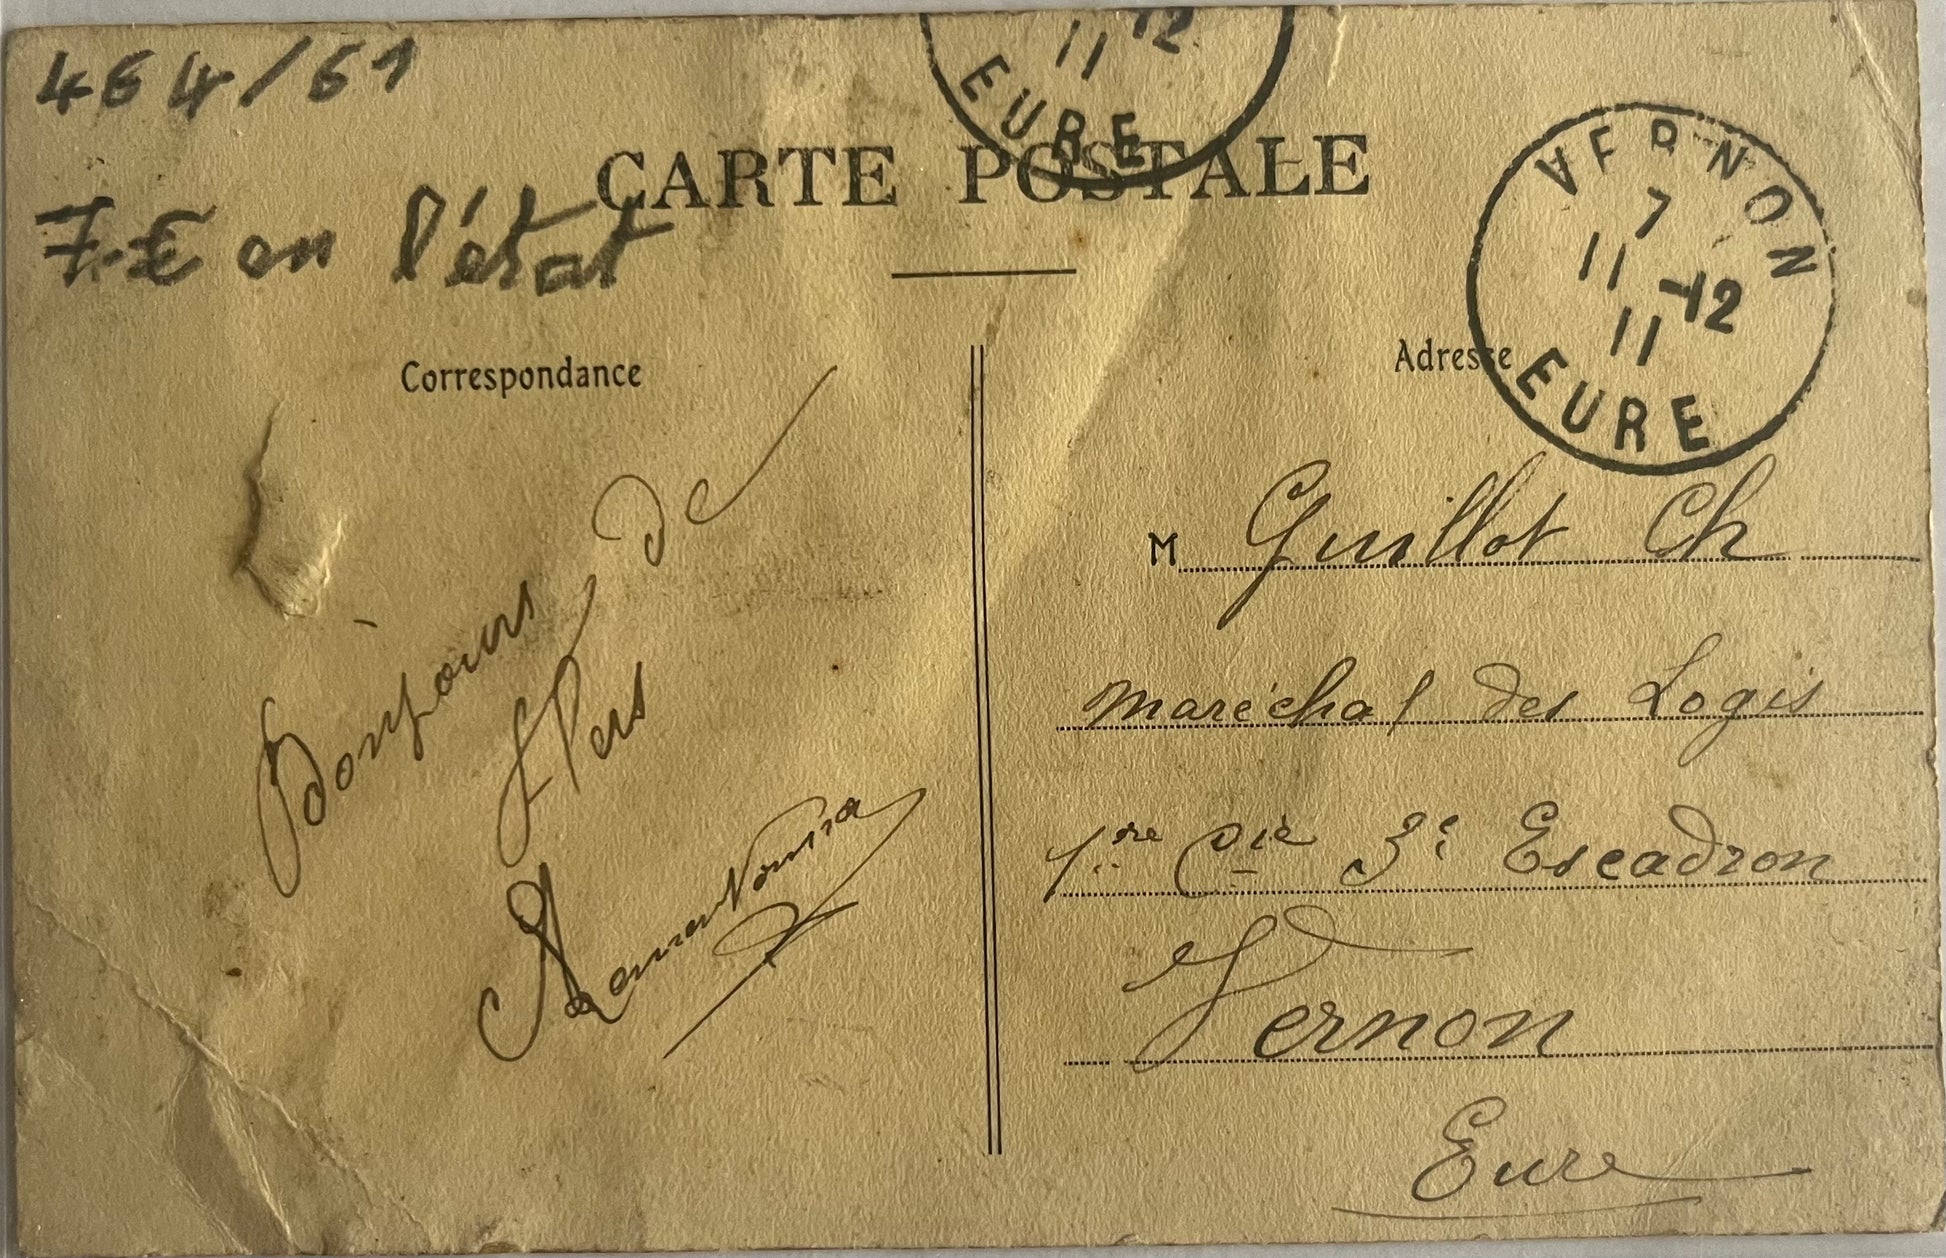 464/61
11 12
EURE
CARTE POSTALE
7.€ en l'état
VERNON
7
11 -12
11
EURE
Correspondance
Adresse
Bonjours de
Flers
M Guillot Ch
maréchal des Logis
1re Cie 3e Escadron
Vernon
Eure